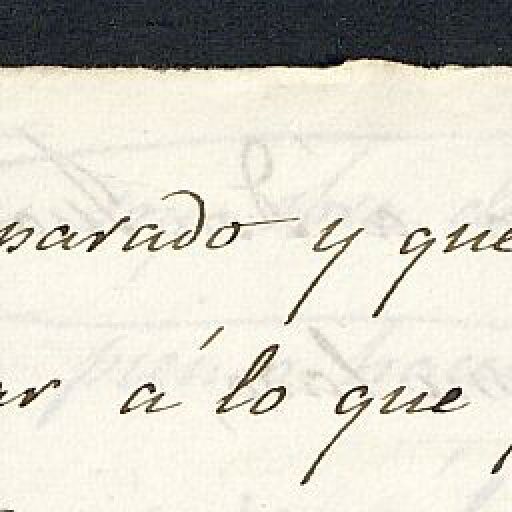 parado y que
ar á lo que